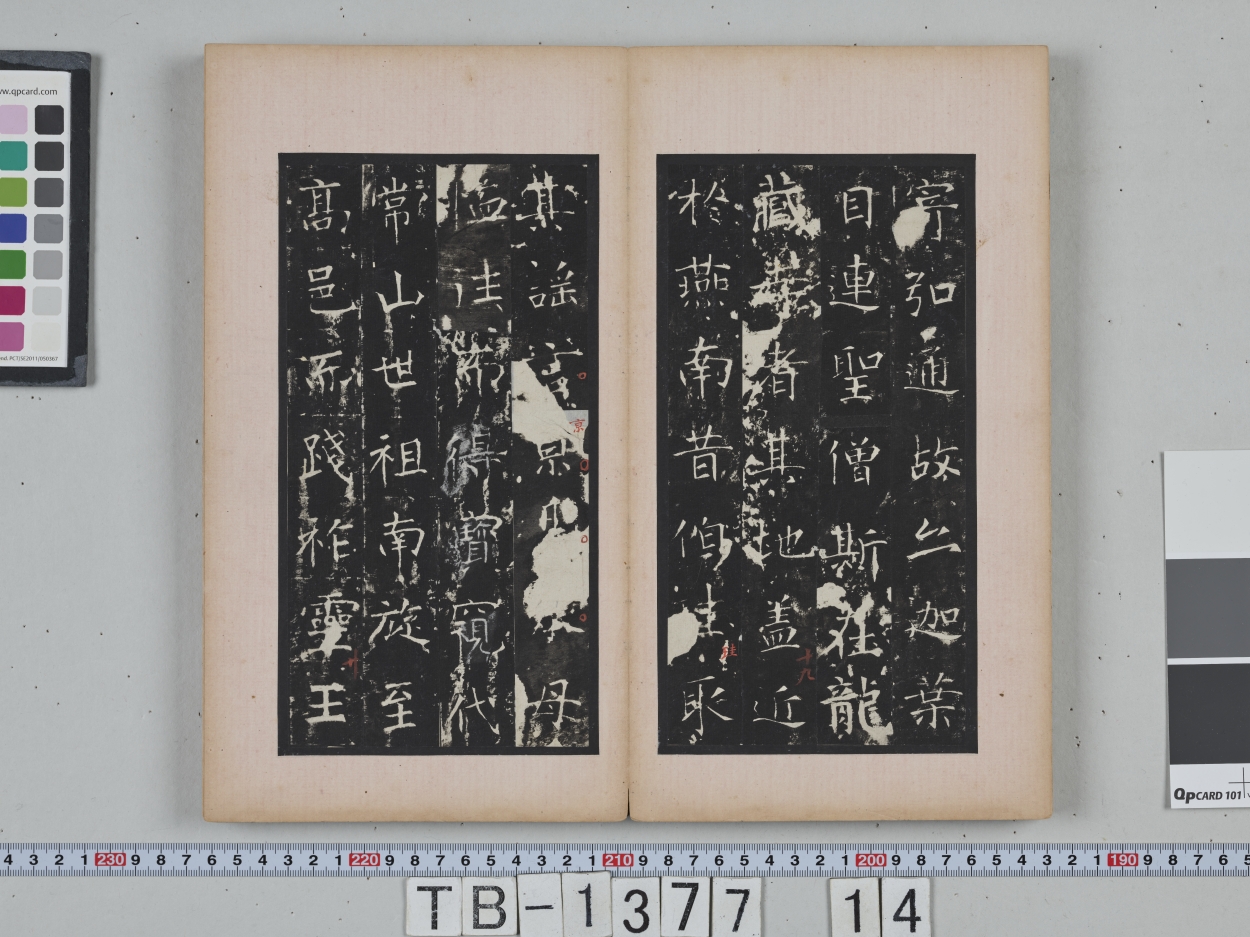 寄弘通故以迦葉
目連聖僧斯在龍
藏寺者其地蓋近
於燕南昔伯珪取
其謠言京母
恤往而得寶窺代
常山世祖南旋至
高邑而踐祚靈王
十九
珪
京
廿
www.qpcard.com
QPCARD 101
4 3 2 1 230 9 8 7 6 5 4 3 2 1 220 9 8 7 6 5 4 3 2 1 210 9 8 7 6 5 4 3 2 1 200 9 8 7 6 5 4 3 2 1 190 9 8 7 6 5
TB-1377 14